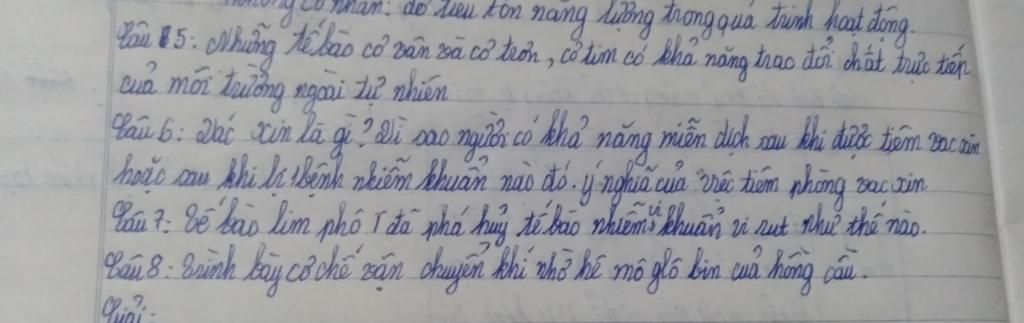 không có nhân: do tiêu tốn năng lượng trong quá trình hoạt động.
Câu 5: Những tế bào cơ vân và cơ trơn, cơ tim có khả năng trao đổi chất trực tiếp
của môi trường ngoài tự nhiên
Câu 6: Vác xin là gì? Vì sao người có khả năng miễn dịch sau khi được tiêm vac xin
hoặc sau khi bị 1 bệnh nhiễm khuẩn nào đó. ý nghĩa của việc tiêm phòng vac xin
Câu 7: Tế bào lim phô T đã phá huỷ tế bào nhiễm vi khuẩn vi rut như thế nào.
Câu 8: Trình bày cơ chế vận chuyển khí nhờ hê mô glô bin của hồng cầu.
Giải: